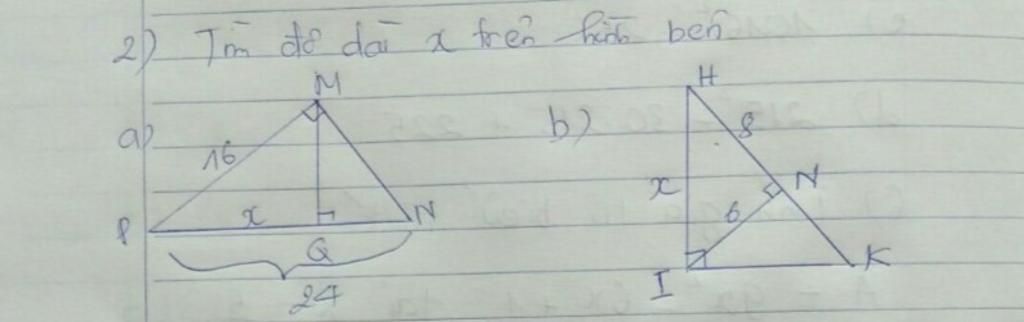 2) Tìm độ dài x trên hình bên
a)
M
16
x
P
Q
N
24
b)
H
8
x
N
6
I
K